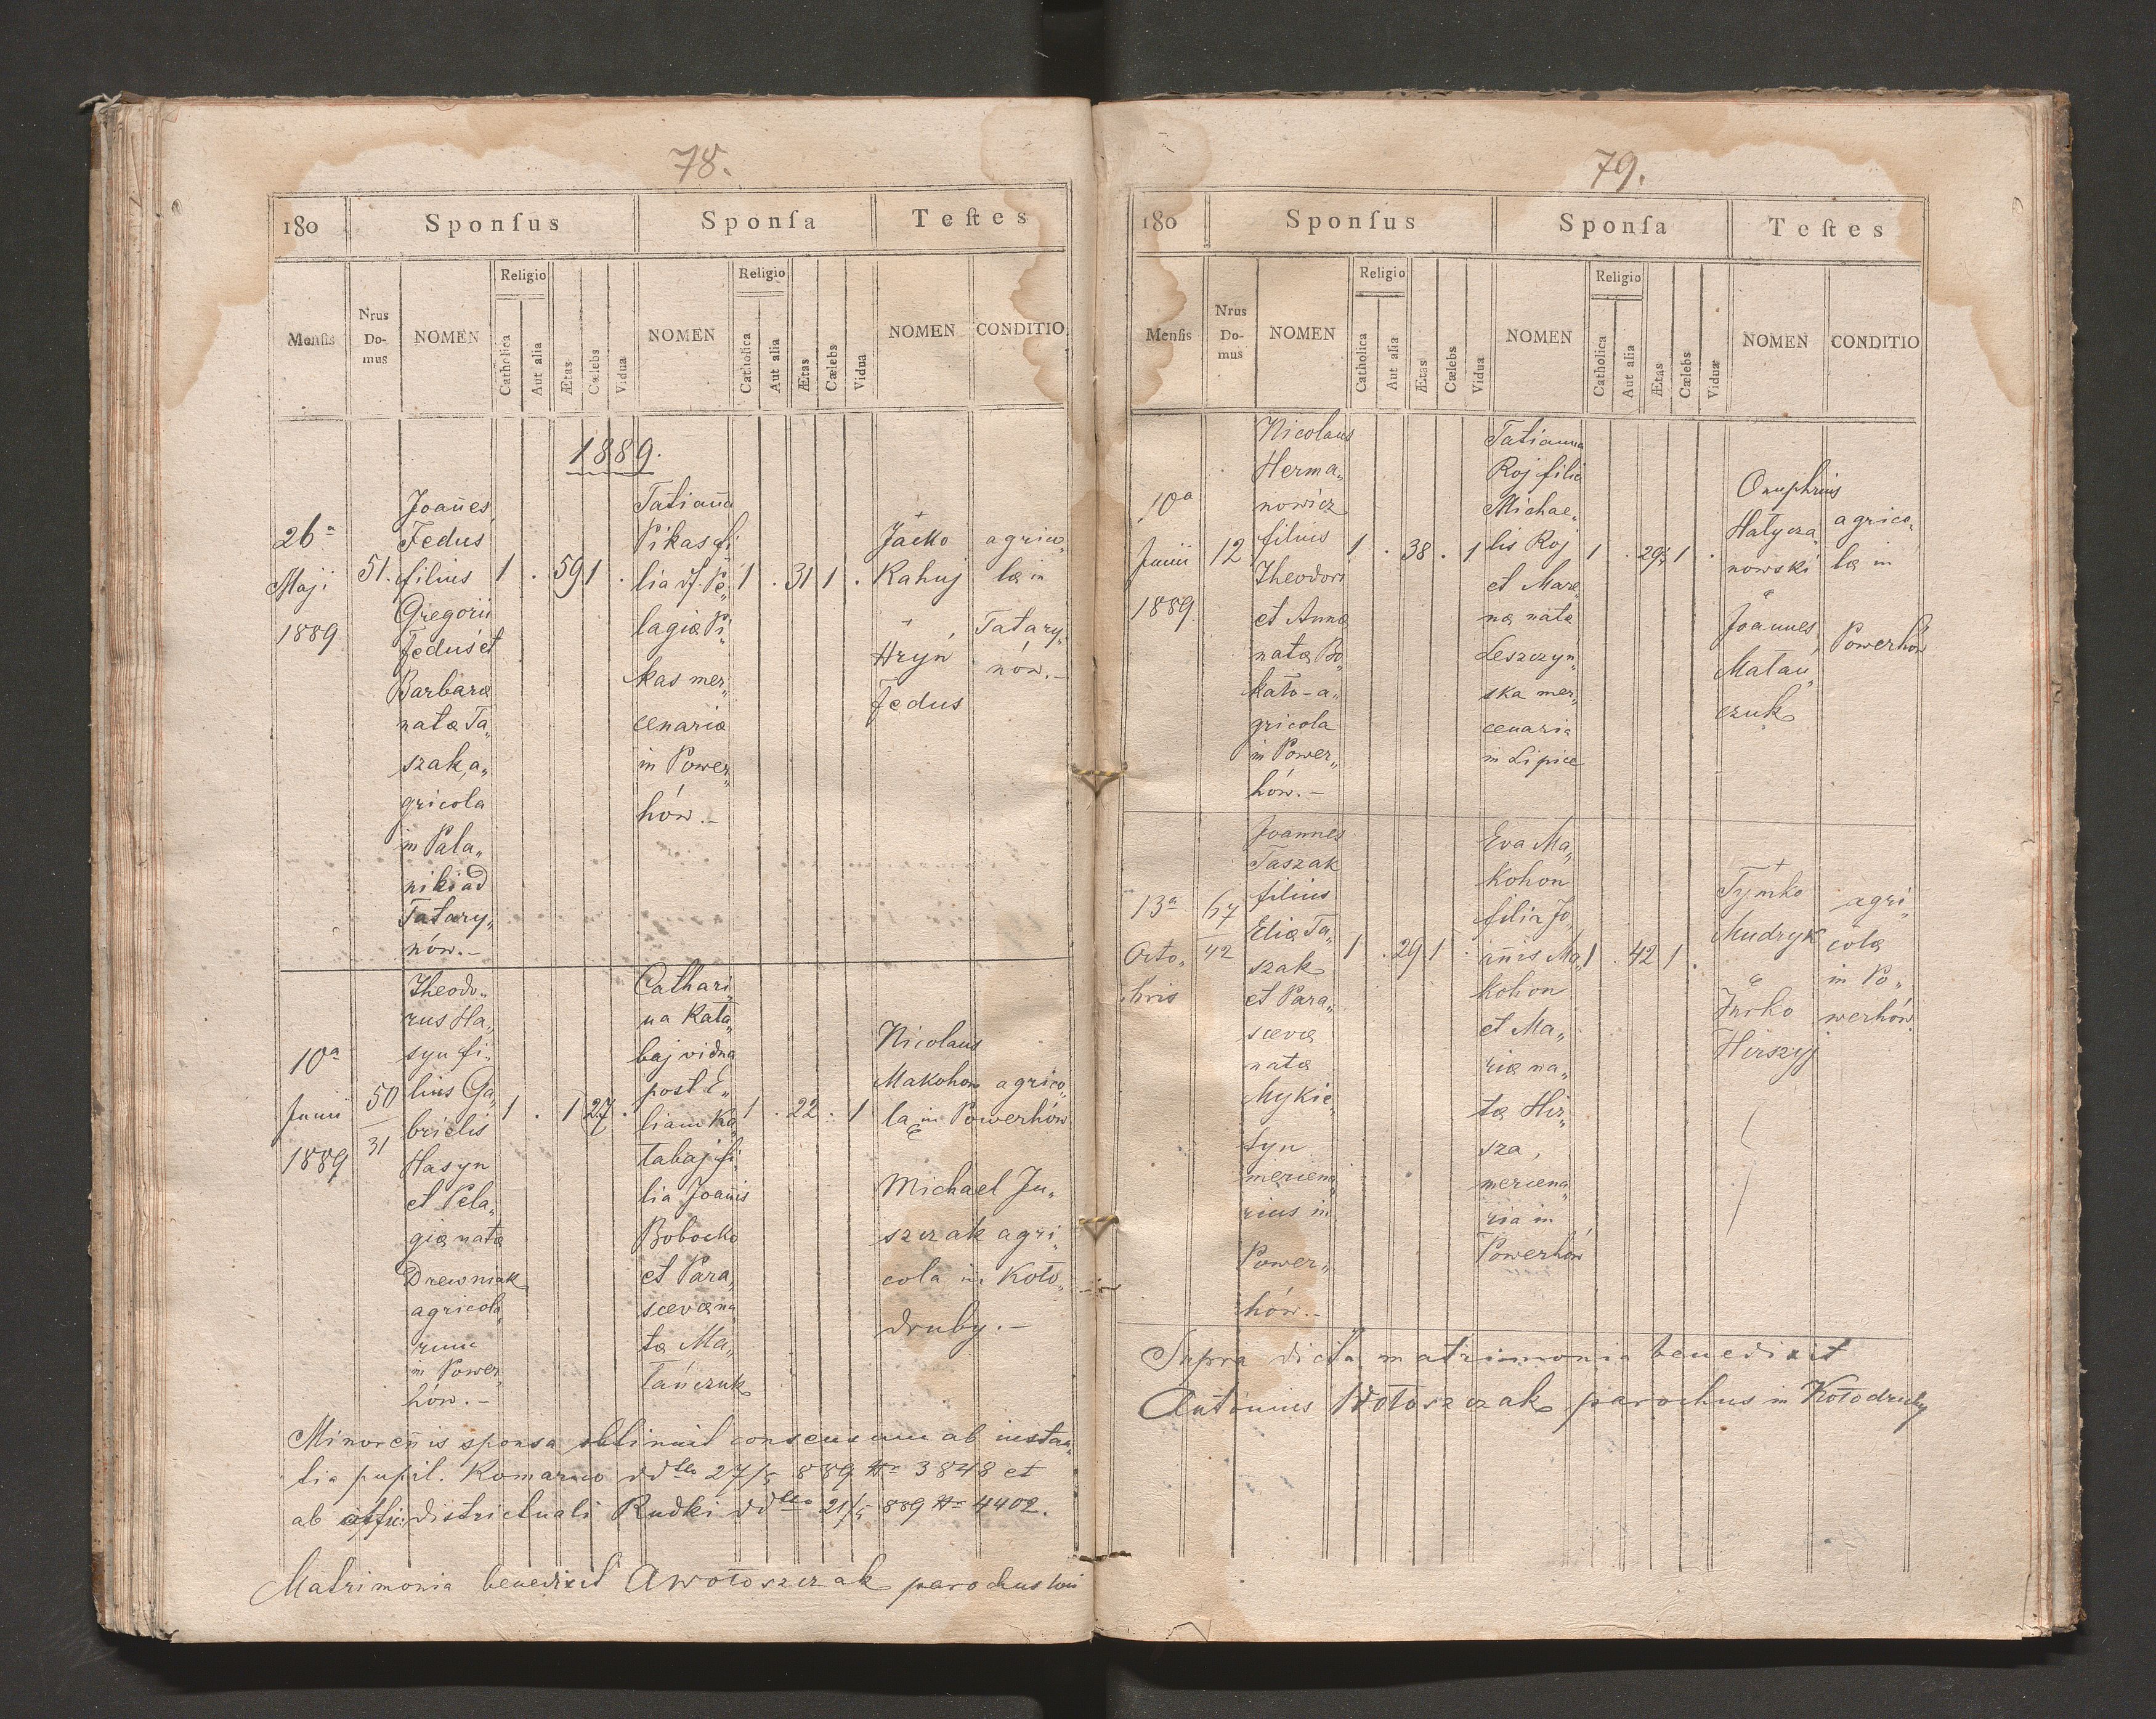 78.
180 Sponſus Sponſa Teſtes
Menſis Nrus Domus NOMEN Religio Catholica Aut alia Ætas Cælebs Vidua NOMEN Religio Catholica Aut alia Ætas Cælebs Vidua NOMEN CONDITIO
1889.
26a
Maji
1889
51.
Joañes
Fedus
filius
Gregorii
Fedus et
Barbara
nata Ta„
szak, a„
gricola
in Pala„
niki ad
Tatary„
nów.–
1 . 59 1 .
Tatiaña
Pikas fi
lia if. Pe„
lagia Pi„
kas mer„
cenaria
in Power„
hów.–
1 . 31 1 .
+
Jaćko
Kahuj
+
Hryń
Fedus
agrico„
la in
Tatary„
nów.–
10a
Junii
1889
50
31
Theodo„
rus Ha„
syn fi„
lius Ga„
brielis
Hasyn
et Pela„
gia nata
Drewniak
agricola
rum
in Power
hów.–
1 . 1 27 .
Cathari„
na Kata„
baj vidua
post E„
liam Ka„
tabaj fi„
lia Joañis
Bobocko
et Para„
scevæ na
ta Ma„
łańczuk
1 . 22 . 1
Nicolaus
Makohon agrico„
la in Powerhów
&
Michael Ju„
szczak agri„
cola in Koło„
druby.–
Minoreñis sponsa obtinuit consensum ab instan„
tia pupil. Komarno ddto 27/5 889 Nr 3848 et
ab offic: districtuali Rudki ddto 21/5 889 Nr 4402.
Matrimonia benedixit AWołoszczak parochus loci
79.
180 Sponſus Sponſa Teſtes
Menſis Nrus Domus NOMEN Religio Catholica Aut alia Ætas Cælebs Vidua NOMEN Religio Catholica Aut alia Ætas Cælebs Viduæ NOMEN CONDITIO
10a
Junii
1889.
12
Nicolaus
Herma„
nowicz
filius
Theodori
et Anna
nata Bo„
kało–a„
gricola
in Power„
hów.–
1 . 38 . 1
Tatianna
Roj filia
Michae„
lis Roj
et Mare
na nata
Leszczyn„
ska mer„
cenaria
in Lipice
1 . 29 1 .
Onuphrius
Hałycza„
nowski
&
Joannes
Małan„
czuk
agrico„
la in
Powerhów
13a
Octo„
bris
67
42
Joannes
Taszak
filius
Elia Ta„
szak
et Para„
scevæ
nata
Mykie„
tyn
mercena„
rius in
Power„
hów.–
1 . 29 1 .
Eva Ma„
kohon
filia Jo„
añis Ma„
kohon
et Ma„
ria na„
ta Hir„
sza,
mercena„
ria in
Powerhów
1 . 42 1 .
+
Tymko
Mudryk
&
Jurko
Hirszyj
agri„
cola
in Po„
werhów.
Supra dicta matrimonia benedixit
Antonius Wołoszczak parochus in Kołodruby